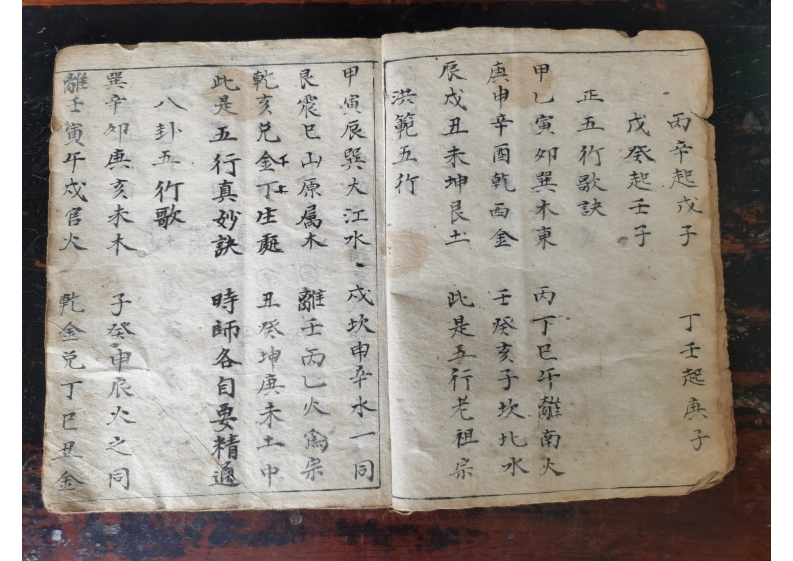 丙辛起戊子 丁壬起庚子
戊癸起壬子
正五行歌訣
甲乙寅卯巽木東 丙丁巳午離南火
庚申辛酉乾西金 壬癸亥子坎北水
辰戌丑未坤艮土 此是五行老祖宗
洪範五行
甲寅辰巽大江水 戌坎申辛水一同
艮震巳山原属木 離壬丙乙火為宗
乾亥兑金丁生處 丑癸坤庚未土中
此是五行真妙訣 時師各自要精通
八卦五行歌
巽辛卯庚亥未木 子癸申辰火之同
離壬寅午戍官火 乾金兑丁巳丑金